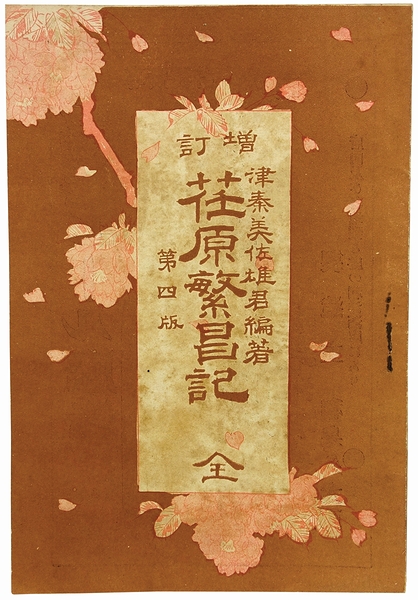 増訂
津秦美佐雄君編著
荏原繁昌記
第四版
全